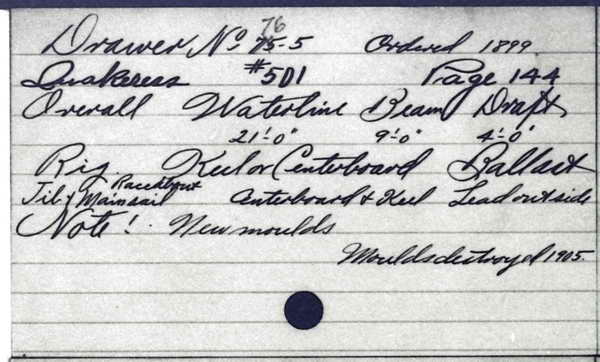 76
Drawer No 75-5 Ordered 1899
Quakeress #501 Page 144
Overall Waterline Beam Draft
21'-0" 9'-0" 4'-0"
Rig Keel or Centerboard Ballast
Raceabout
Jib & Mainsail Centerboard & Keel Lead outside
Note! New moulds
Moulds destroyed 1905.